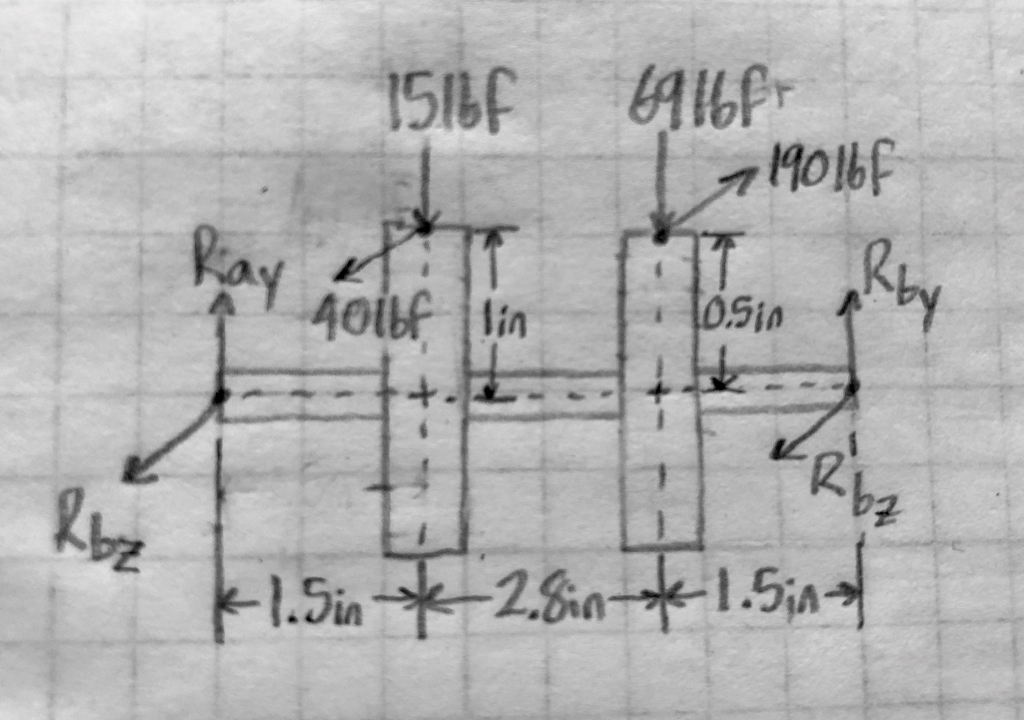 15lbf
69lbf
190lbf
Ray
40lbf
1in
0.5in
Rby
Rbz
Rbz
1.5in
2.8in
1.5in